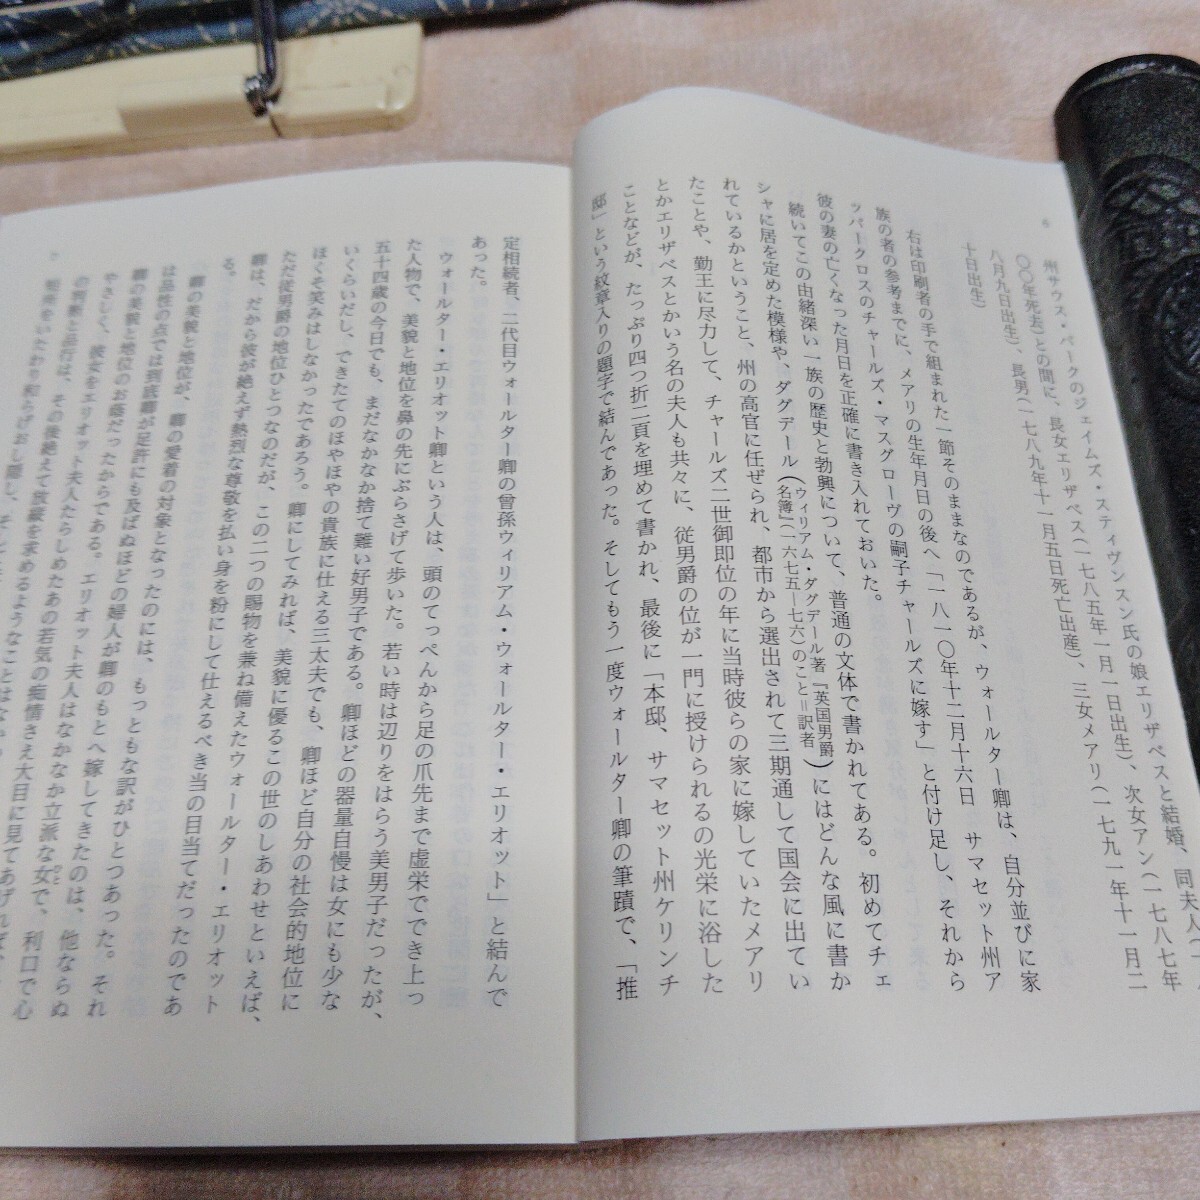 6
州サウス・パークのジェイムズ・スティヴンスン氏の娘エリザベスと結婚、同夫人(一
〇〇年死去)との間に、長女エリザベス(一七八五年一月一日出生)、次女アン(一七八七年
八月九日出生)、長男(一七八九年十一月五日死亡出産)、三女メアリ(一七九一年十一月二
十日出生)
右は印刷者の手で組まれた一節そのままなのであるが、ウォールター卿は、自分並びに家
族の者の参考までに、メアリの生年月日の後へ「一八一〇年十二月十六日 サマセット州ア
ッパークロスのチャールズ・マスグローヴの嗣子チャールズに嫁す」と付け足し、それから
彼の妻の亡くなった月日を正確に書き入れておいた。
続いてこの由緒深い一族の歴史と勃興について、普通の文体で書かれてある。初めてチェ
シャに居を定めた模様や、ダグデール(ウィリアム・ダグデール著『英国男爵名簿』(一六七五―七六)のこと=訳者)にはどんな風に書か
れているかということ、州の高官に任ぜられ、都市から選出されて三期通して国会に出てい
たことや、勤王に尽力して、チャールズ二世御即位の年に当時彼らの家に嫁していたメアリ
とかエリザベスとかいう名の夫人も共々に、従男爵の位が一門に授けられるの光栄に浴した
ことなどが、たっぷり四つ折二頁を埋めて書かれ、最後に「本邸、サマセット州ケリンチ
邸」という紋章入りの題字で結んであった。そしてもう一度ウォールター卿の筆蹟で、「推
7
定相続者、二代目ウォールター卿の曾孫ウィリアム・ウォールター・エリオット」と結んで
あった。
ウォールター・エリオット卿という人は、頭のてっぺんから足の爪先まで虚栄ででき上っ
た人物で、美貌と地位を鼻の先にぶらさげて歩いた。若い時は辺りをはらう美男子だったが、
五十四歳の今日でも、まだなかなか捨て難い好男子である。卿ほどの器量自慢は女にも少な
いくらいだし、できたてのほやほやの貴族に仕える三太夫でも、卿ほど自分の社会的地位に
ほくそ笑みはしなかったであろう。卿にしてみれば、美貌に優るこの世のしあわせといえば、
ただ従男爵の地位ひとつなのだが、この二つの賜物を兼ね備えたウォールター・エリオット
卿は、だから彼が絶えず熱烈な尊敬を払い身を粉にして仕えるべき当の目当てだったのであ
る。
卿の美貌と地位が、卿の愛着の対象となったのには、もっともな訳がひとつあった。それ
は品性の点では到底卿が足許にも及ばぬほどの婦人が卿のもとへ嫁してきたのは、他ならぬ
卿の美貌と地位のお蔭だったからである。エリオット夫人はなかなか立派な女で、利口で心
やさしく、彼女をエリオット夫人たらしめたあの若気の痴情さえ大目に見てあげれば、
の判断と品行は、その後絶えて放縦を求めるようなことはな
をいたわり和らげおし隠し、そして